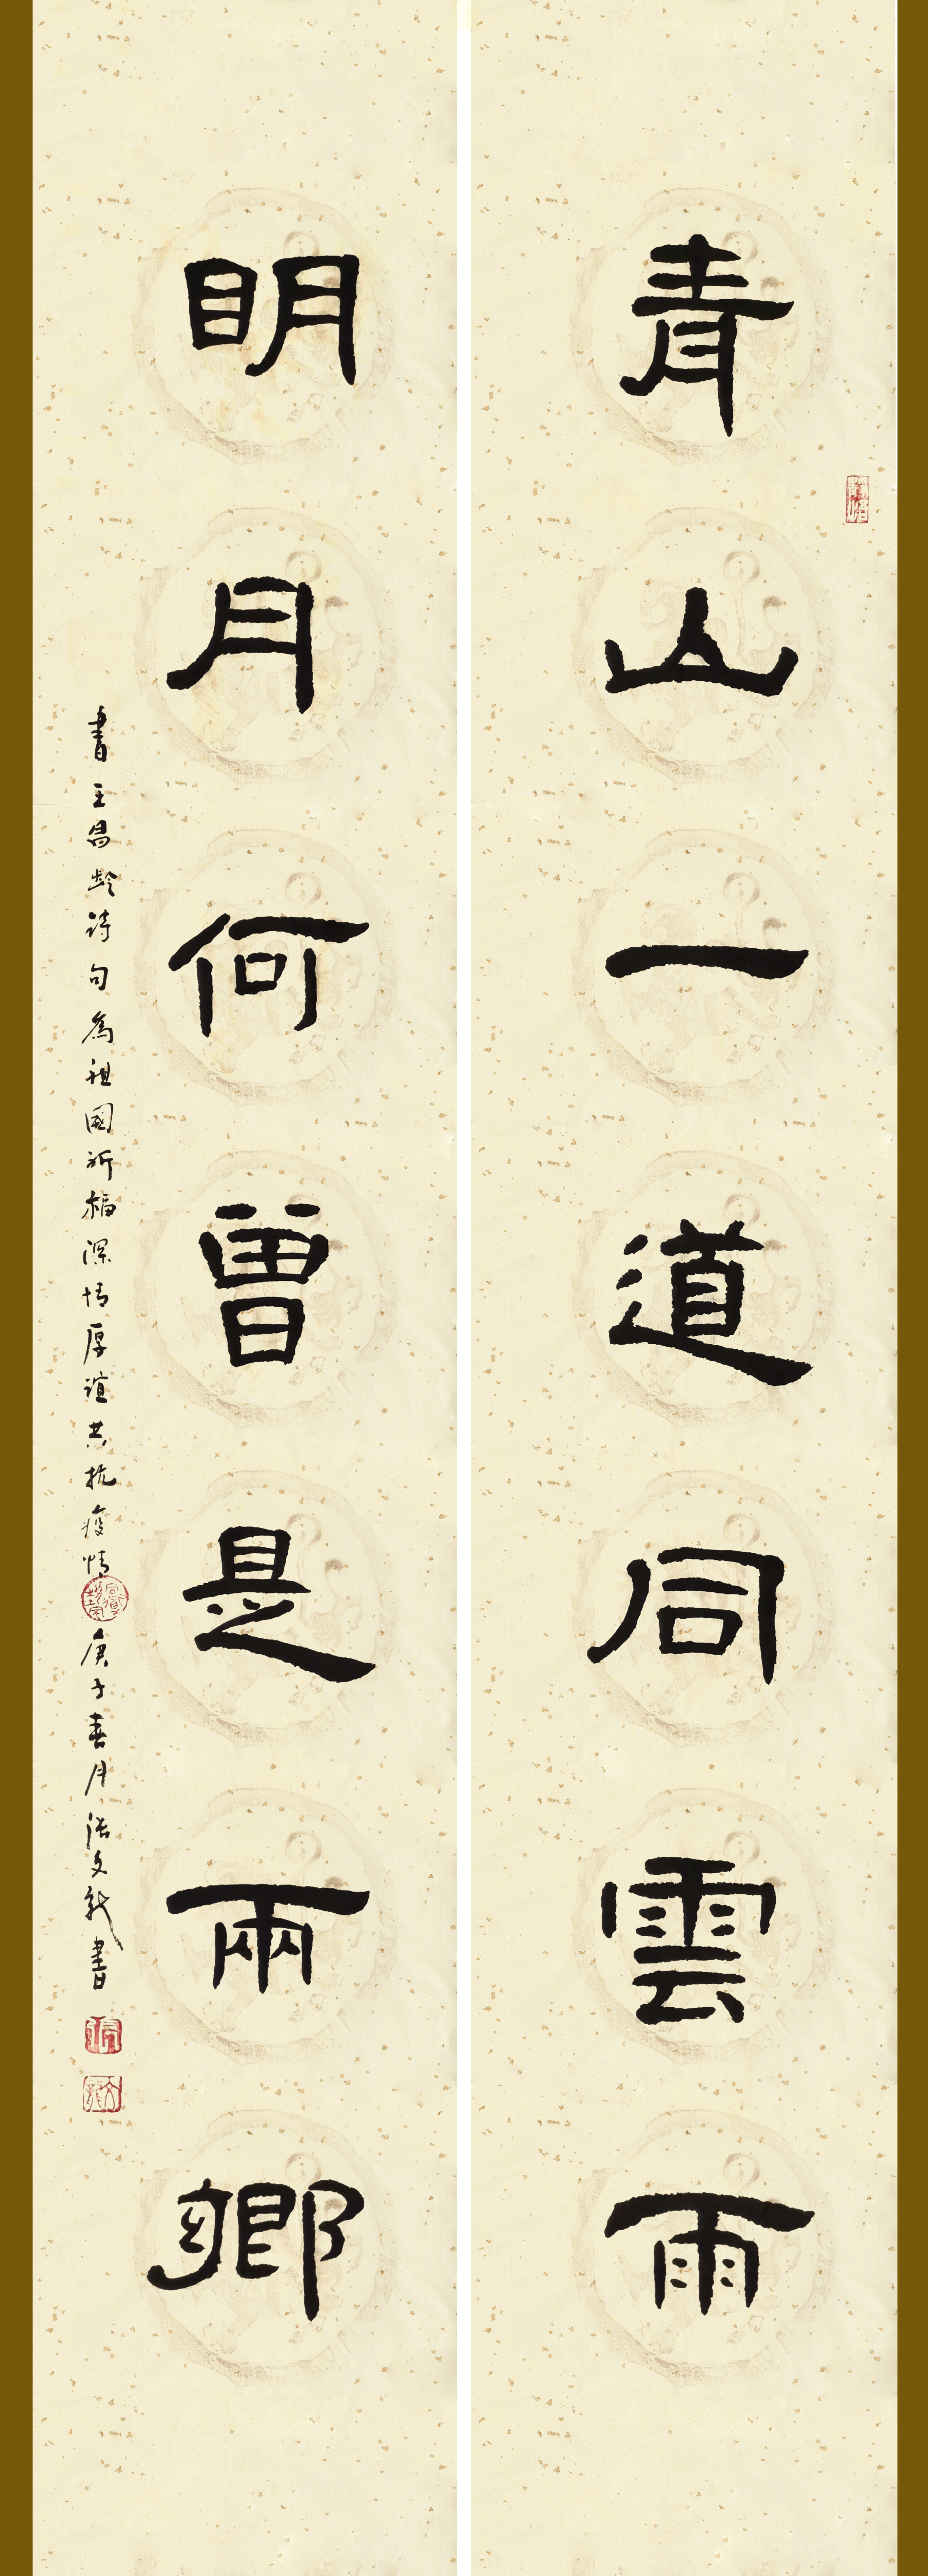 青山一道同雲雨
明月何曾是兩鄉
書王昌齡詩句為祖國祈福深情厚誼共抗疫情庚子春月張文龍書